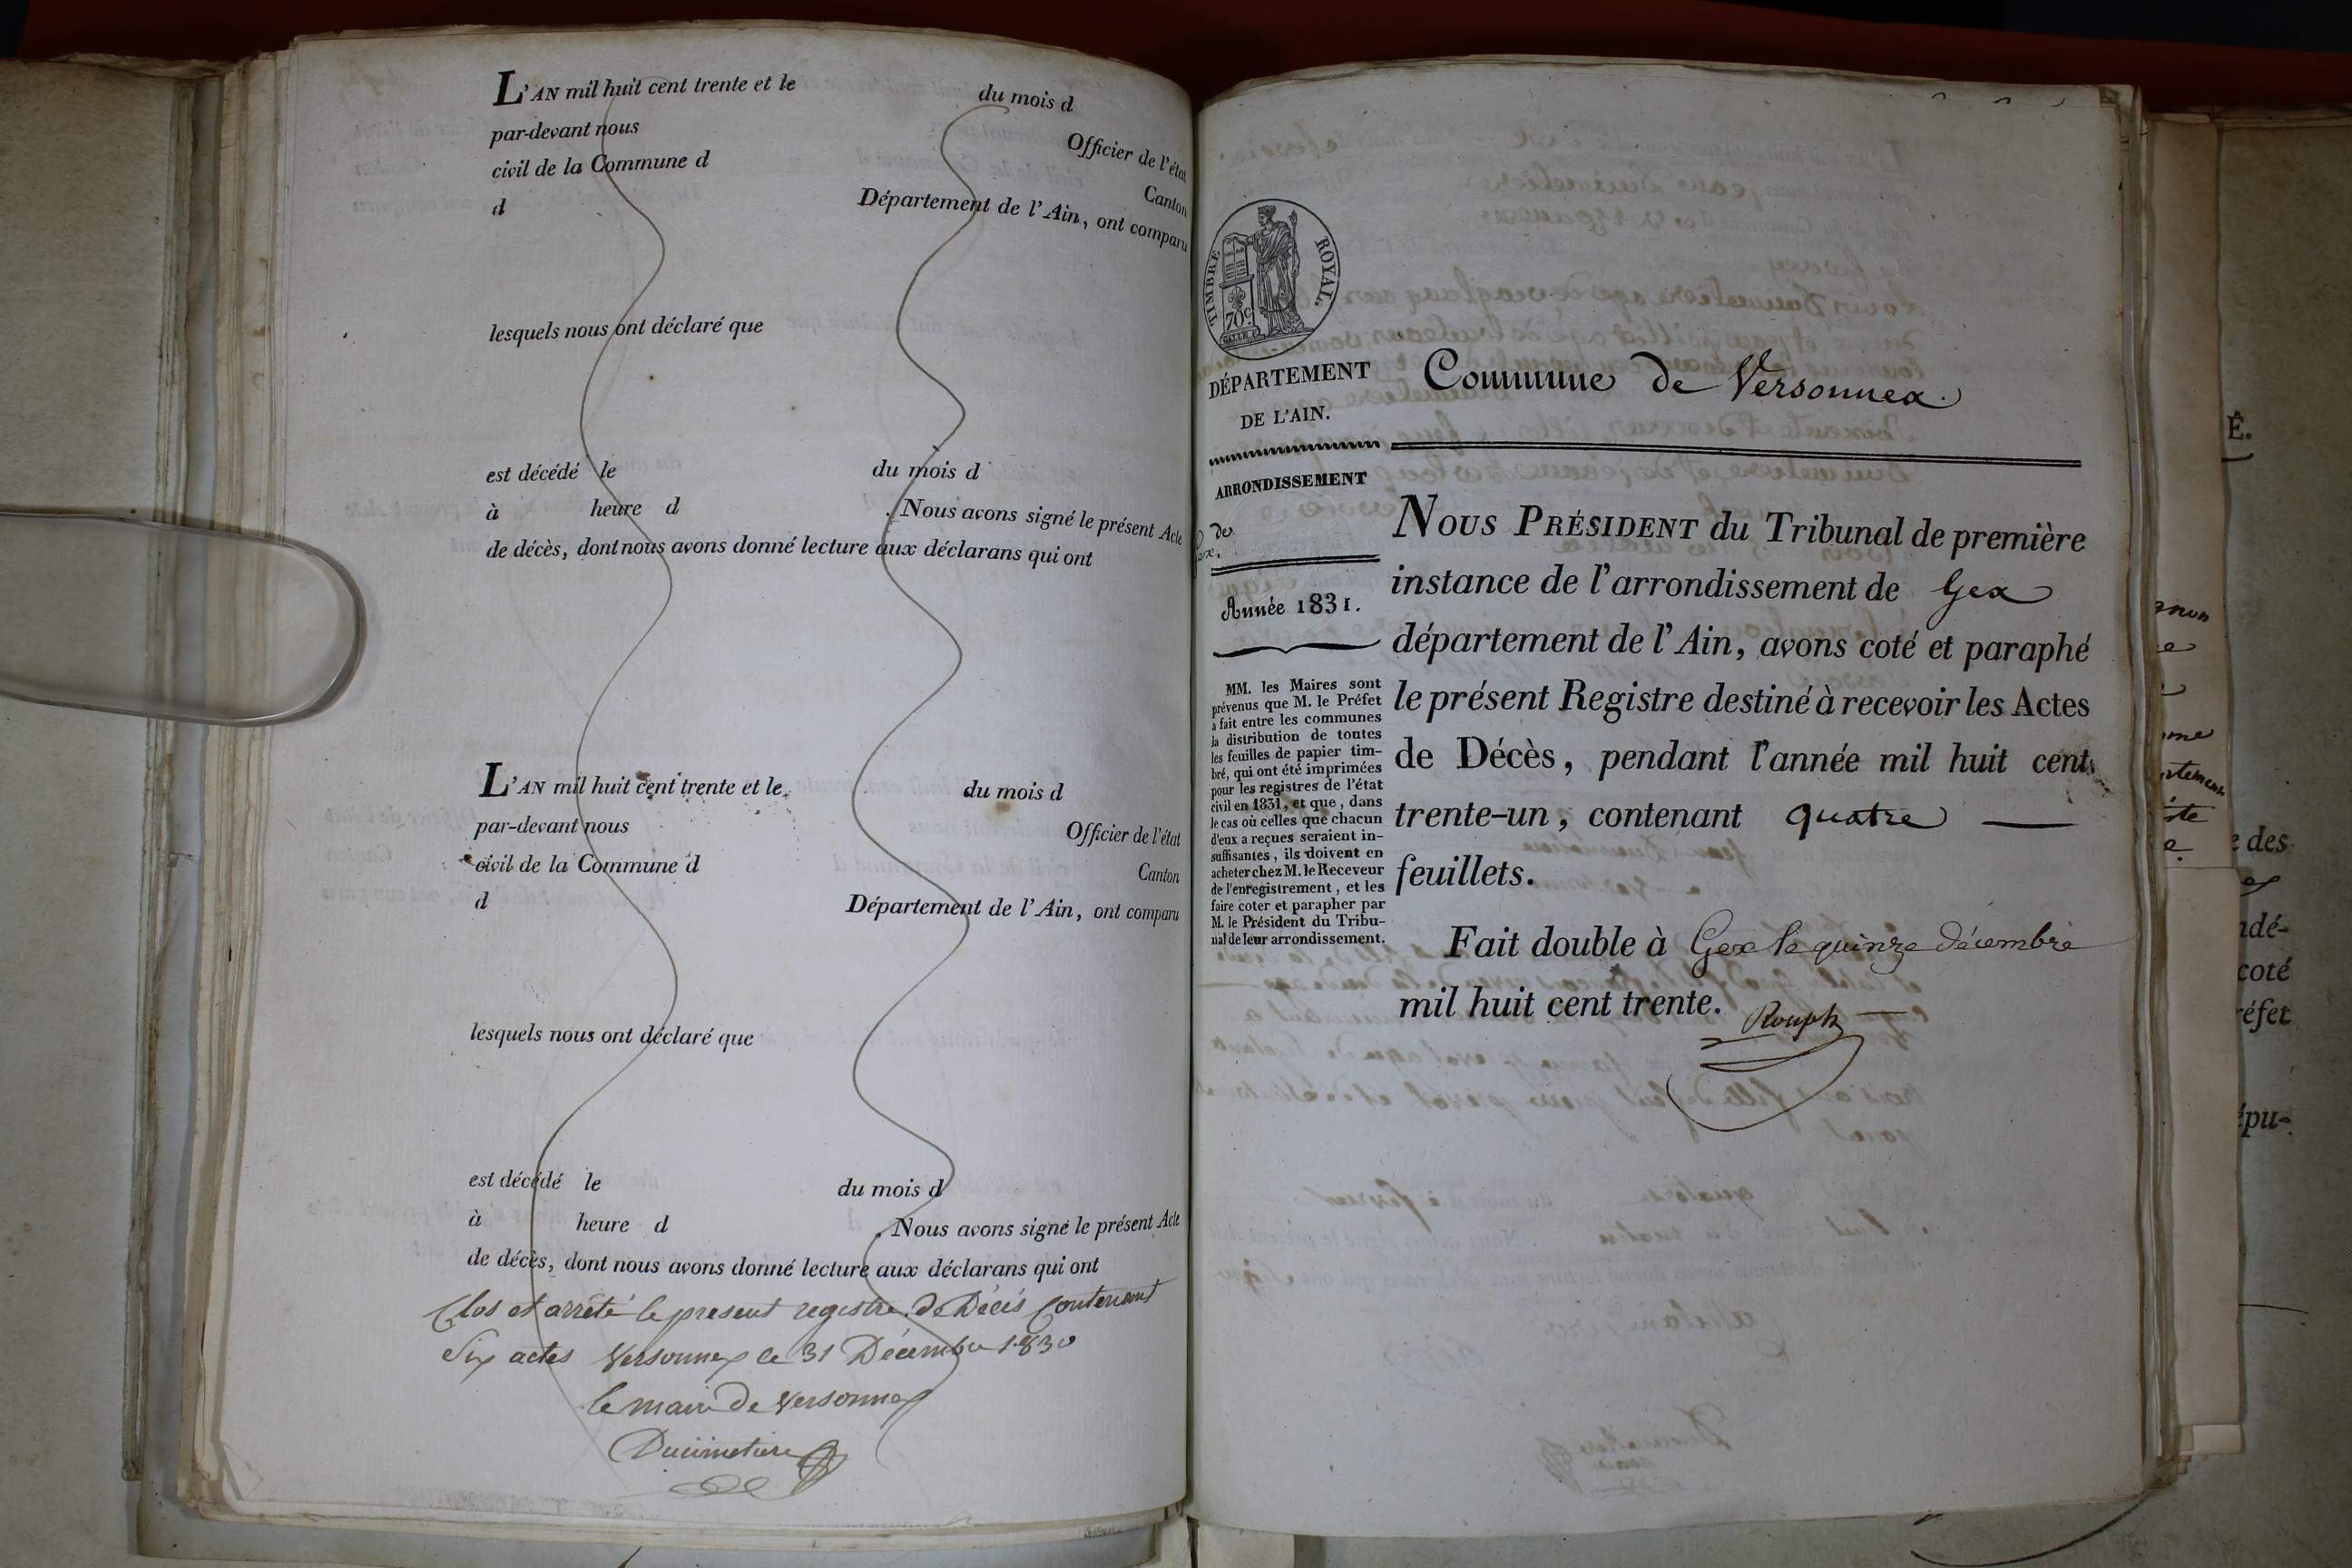 L'AN mil huit cent trente et le du mois d
par-devant nous Officier de l'état
civil de la Commune d Canton
d Département de l'Ain, ont comparu
lesquels nous ont déclaré que
est décédé le du mois d
à heure d . Nous avons signé le présent Acte
de décès, dont nous avons donné lecture aux déclarans qui ont
L'AN mil huit cent trente et le du mois d
par-devant nous Officier de l'état
civil de la Commune d Canton
d Département de l'Ain, ont comparu
lesquels nous ont déclaré que
est décédé le du mois d
à heure d . Nous avons signé le présent Acte
de décès, dont nous avons donné lecture aux déclarans qui ont
Clos et arrêté le present registre de Décès Contenant
Six actes Versonnex le 31 Décembre 1830
le maire De Versonnex
Ducimetiere
TIMBRE ROYAL.
70c.
DÉPARTEMENT
DE L'AIN.
ARRONDISSEMENT
de
Gex.
Année 1831.
MM. les Maires sont
prévenus que M. le Préfet
a fait entre les communes
la distribution de toutes
les feuilles de papier tim-
bré, qui ont été imprimées
pour les registres de l'état
civil en 1831, et que, dans
le cas où celles que chacun
d'eux a reçues seraient in-
suffisantes, ils doivent en
acheter chez M. le Receveur
de l'enregistrement, et les
faire coter et parapher par
M. le Président du Tribu-
nal de leur arrondissement.
Commune de Versonnex.
NOUS PRÉSIDENT du Tribunal de première
instance de l'arrondissement de Gex
département de l'Ain, avons coté et paraphé
le présent Registre destiné à recevoir les Actes
de Décès, pendant l'année mil huit cent
trente-un, contenant quatre —
feuillets.
Fait double à Gex le quinze décembre
mil huit cent trente.
Rouph
É.
e des
ndé-
coté
réfet
épu-